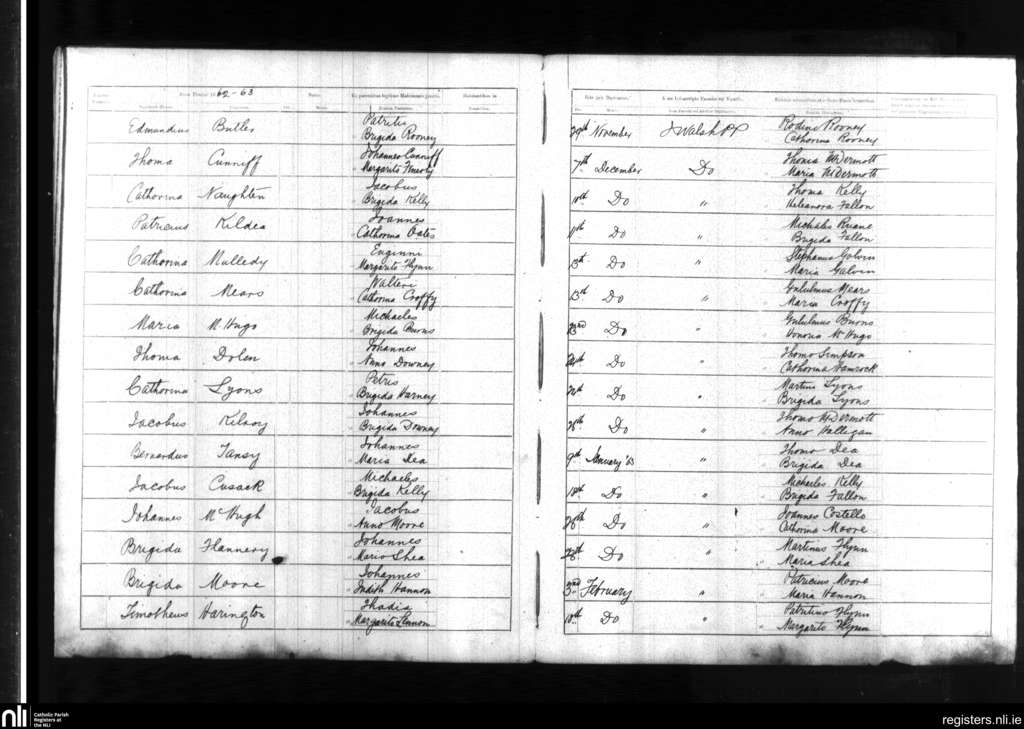 62-63
Edmundus Butler Patritii 29th November J Walsh PP Rooney
Brigida Rooney Catherina Rooney
Thoma Cunniff Johannes Cunniff 7th December Do Thoma McDermott
Margarita Maria McDermott
Catherina Naughten Jacobus 10th Do " Thoma Kelly
Brigida Kelly Heleanora Fallon
Patricius Kildea Joannes 11th Do " Michaelis Ruane
Catherina Oates Brigida Fallon
Catherina Mulledy Euginni 13th Do " Stephanus Galvin
Margarita Flynn Maria Galvin
Catherina Mears Walteri 13th Do " Gulielmus Mears
Catherina Croffy Maria Croffy
Maria McHugo Michaeles 23nd Do " Gulielmus Burns
Brigida Burns Honoria McHugo
Thoma Dolan Johannes Do " Thoma Simpson
Anna Downey Catherina Hamrock
Catherina Lyons Petris Do " Martin Lyons
Brigida Harney Brigida Lyons
Jacobus Kilroy Johannes 28th Do " Thoma McDermott
Brigida Downey Anna Hallegan
Bernardus Tansy Johannes 9th January '63 " Thoma Dea
Maria Dea Brigida Dea
Jacobus Cusack Michaeles 18th Do " Michaeles Kelly
Brigida Kelly Brigida Fallon
Johannes McHugh Jacobus 26th Do " Joannes Costello
Anna Moore Catherina Moore
Brigida Flannery Johannes 28th Do " Martinus Flynn
Maria Shea Maria Shea
Brigida Moore Johannes 3nd February " Patricius Moore
Judith Hannon Maria Hannon
Timotheus Harington Thadia 10th Do " Flynn
Margarita Hannon Margarita Flynn
nli
Catholic Parish
Registers at
the NLI
registers.nli.ie